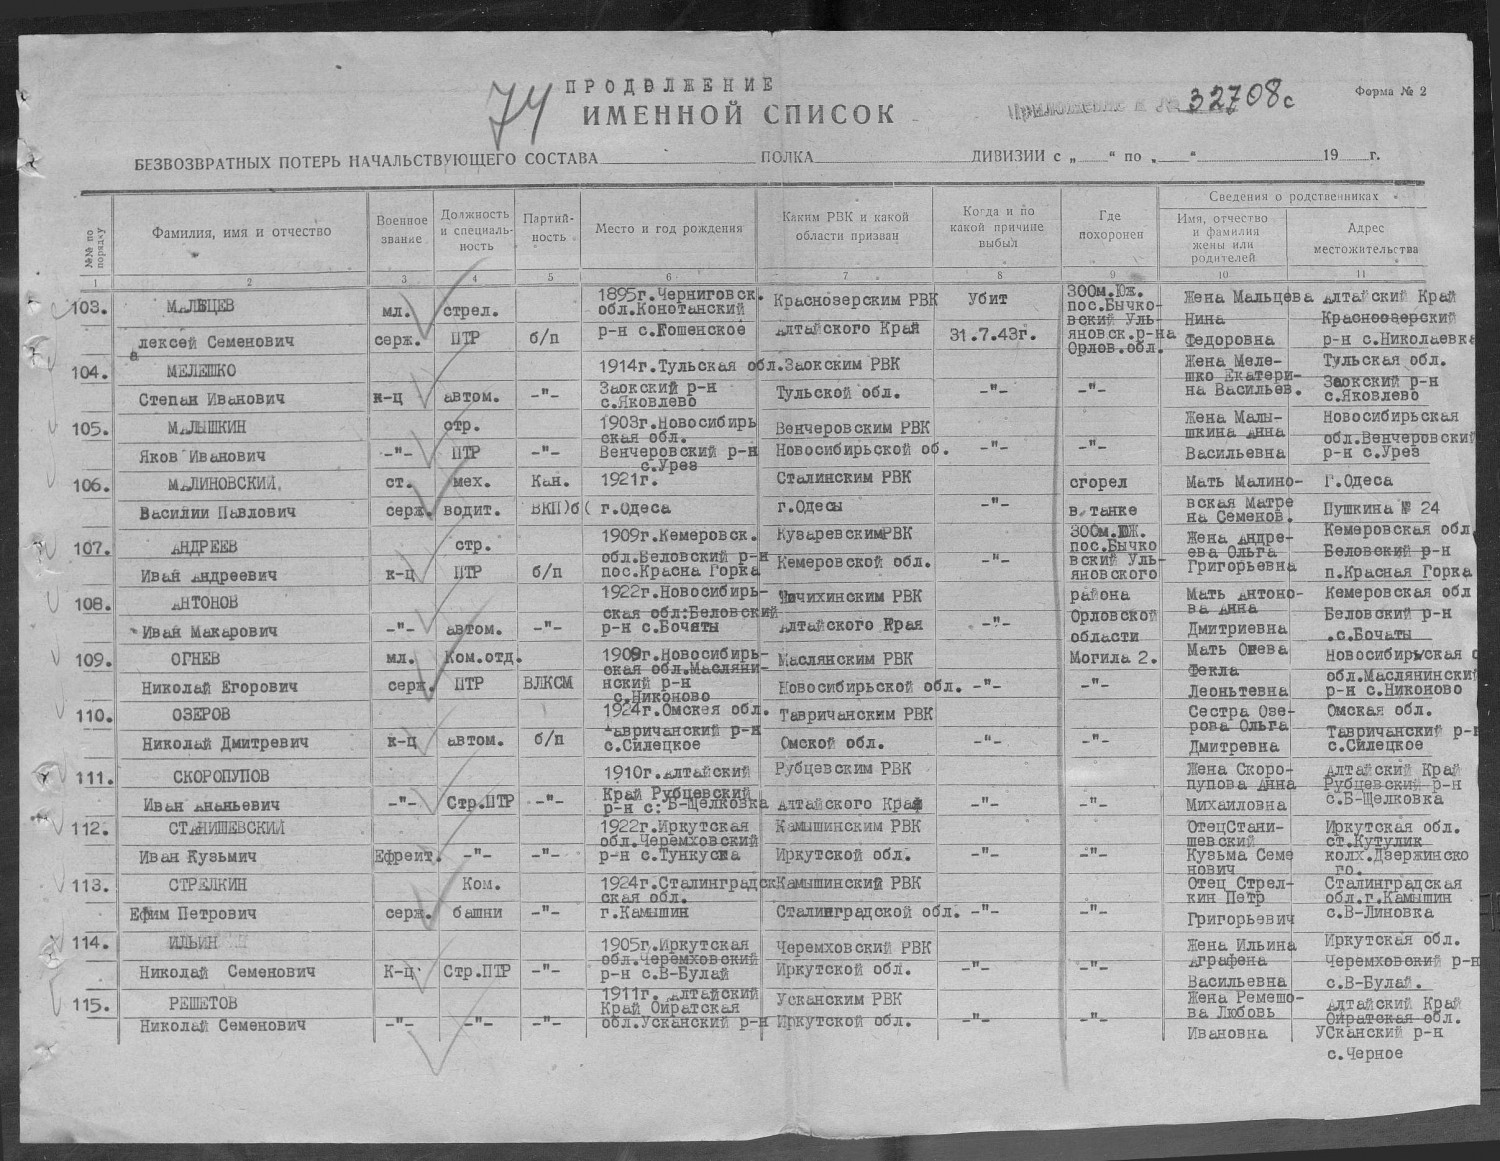 ПРОДОЛЖЕНИЕ
74
ИМЕННОЙ СПИСОК
Приложение к № 32708с
Форма № 2
БЕЗВОЗВРАТНЫХ ПОТЕРЬ НАЧАЛЬСТВУЮЩЕГО СОСТАВА ПОЛКА ДИВИЗИИ с „ “ по „ “ 19 г.
№№ по порядку
Фамилия, имя и отчество
Военное звание
Должность и специаль-ность
Партий-ность
Место и год рождения
Каким РВК и какой области призван
Когда и по какой причине выбыл
Где похоронен
Сведения о родственниках
Имя, отчество и фамилия жены или родителей
Адрес местожительства
1 2 3 4 5 6 7 8 9 10 11
103. МАЛЬЦЕВ
Алексей Семенович
мл. серж.
стрел. ПТР
б/п
1895г.Черниговск.
обл.Конотанский
р-н с.Гошенское
Краснозерским РВК
Алтайского Край
Убит
31.7.43г.
300м.Юж.
пос.Бычко-
вский Уль-
яновск.р-на
Орлов.обл.
Жена Мальцева
Нина
Федоровна
Алтайский Край
Краснозерский
р-н с.Николаевка
104. МЕЛЕШКО
Степан Иванович
к-ц
автом.
-"-
1914г.Тульская обл.
Заокский р-н
с.Яковлево
Заокским РВК
Тульской обл.
-"-
-"-
Жена Меле-
шко Екатери-
на Васильев.
Тульская обл.
Заокский р-н
с.Яковлево
105. МАЛЫШКИН
Яков Иванович
-"-
стр.
ПТР
-"-
1903г.Новосибирь
ская обл.
Венчеровский р-н
с.Урез
Венчеровским РВК
Новосибирьской об.
-"-
-"-
Жена Малы-
шкина Анна
Васильевна
Новосибирьская
обл.Венчеровский
р-н с.Урез
106. МАЛИНОВСКИЙ.
Василии Павлович
ст.
серж.
мех.
водит.
Кан.
ВКП)б(
1921г.
г.Одеса
Сталинским РВК
г.Одесы
-"-
сгорел
в танке
Мать Малино-
вская Матре
на Семенов.
Г.Одеса
Пушкина № 24
107. АНДРЕЕВ
Иван Андреевич
к-ц
стр.
ПТР
б/п
1909г.Кемеровск.
обл.Беловский р-н
пос.Красна Горка
КузаревскимРВК
Кемеровской обл.
-"-
300м.ЮЖ.
пос.Бычко
вский Уль-
яновского
Жена Андре-
ева Ольга
Григорьевна
Кемеровская обл.
Беловский р-н
п.Красная Горка
108. АНТОНОВ
Иван Макарович
-"-
автом.
-"-
1922г.Новосибирь-
ская обл:Беловский
р-н с.Бочаты
Чичихинским РВК
Алтайского Края
-"-
района
Орловской
области
Мать Антоно-
ва Анна
Дмитриевна
Кемеровская обл
Беловский р-н
.с.Бочаты
109. ОГНЕВ
Николай Егорович
мл.
серж.
Ком.отд.
ПТР
ВЛКСМ
1909г.Новосибирь-
ская обл.Масляни-
нский р-н
с.Никоново
Маслянским РВК
Новосибирьской обл.
-"-
Могила 2.
-"-
Мать Онева
Фекла
Леоньтевна
Новосибирьская о
обл.Маслянинский
р-н с.Никоново
110. ОЗЕРОВ
Николай Дмитревич
к-ц
автом.
б/п
1924г.Омскея обл.
Тавричанский р-н
с.Силецкое
Тавричанским РВК
Омской обл.
-"-
-"-
Сестра Озе-
рова Ольга
Дмитревна
Омская обл.
Тавричанский р-н
с.Силецкое
111. СКОРОПУПОВ
Иван Ананьевич
-"-
Стр.ПТР
-"-
1910г.Алтайский
Край Рубцевский
р-н с: Б-Щелковка
Рубцевским РВК
Алтайского Край
-"-
-"-
Жена Скоро-
пупова Анна
Михаиловна
Алтайский Край
Рубцевский р-н
с.Б-Щелковка
112. СТАНИШЕВСКИЙ
Иван Кузьмич
Ефреит.
-"-
-"-
1922г.Иркутская
обл.Черемховский
р-н с.Тункуска
Камышинским РВК
Иркутской обл.
-"-
-"-
ОтецСтани-
шевский
Кузьма Семе
нович
Иркутская обл.
ст.Кутулик
колх.Дзержинско
го.
113. СТРЕЛКИН
Ефим Петрович
серж.
Ком.
башни
-"-
1924г.Сталинградск
ская обл.
г.Камышин
Камышинский РВК
Сталинградской обл.
-"-
-"-
Отец Стрел-
кин Петр
Григорьевич
Сталинградская
обл.г.Камышин
с.В-Линовка
114. ИЛЬИН
Николай Семенович
К-ц
Стр.ПТР
-"-
1905г.Иркутская
обл.Черемховский
р-н с.В-Булай
Черемховский РВК
Иркутской обл.
-"-
-"-
Жена Ильина
Аграфена
Васильевна
Иркутская обл.
Черемховский р-н
с.В-Булай.
115. РЕШЕТОВ
Николай Семенович
-"-
-"-
-"-
1911г. Алтайский
Край Ойратская
обл.Усканский р-н
Усканским РВК
Иркутской обл.
-"-
-"-
Жена Ремешо-
ва Любовь
Ивановна
Алтайский Край
Ойратская обл.
УСканский р-н
с.Черное